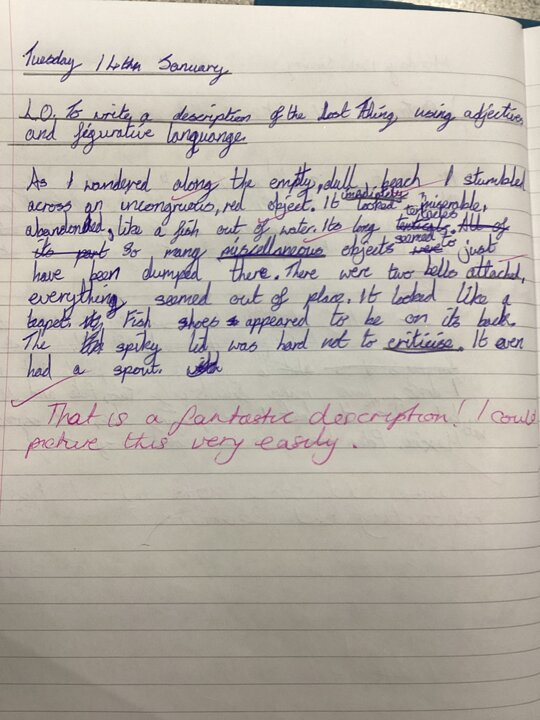 Tuesday 14th January
L.O. To write a description of the Lost Thing, using adjectives
and figurative languange.
As I wandered along the empty, dull beach I stumbled
across an uncongruous, red object. It imediately looked miserable,
abandonded, like a fish out of water. Its long tentacles. All of
its part So many miscellaneous objects seemed to just
have been dumped there. There were two bells attached,
everything seemed out of place. It looked like a
teapet. Fish shoes appeared to be on its back.
The spiky lid was hard not to criticise. It even
had a spout.
That is a fantastic description! I could
picture this very easily.